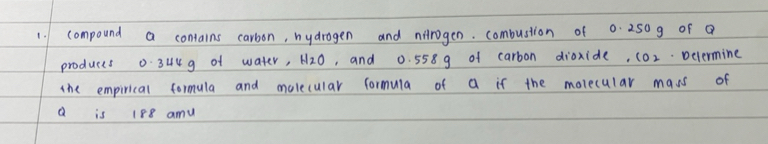 1. Compound Q contains carbon, hydrogen and nitrogen. Combustion of 0.250 g of Q
produces 0.344 g of water, H2O, and 0.558 g of carbon dioxide, CO2. Determine
the empirical formula and molecular formula of Q if the molecular mass of
Q is 188 amu